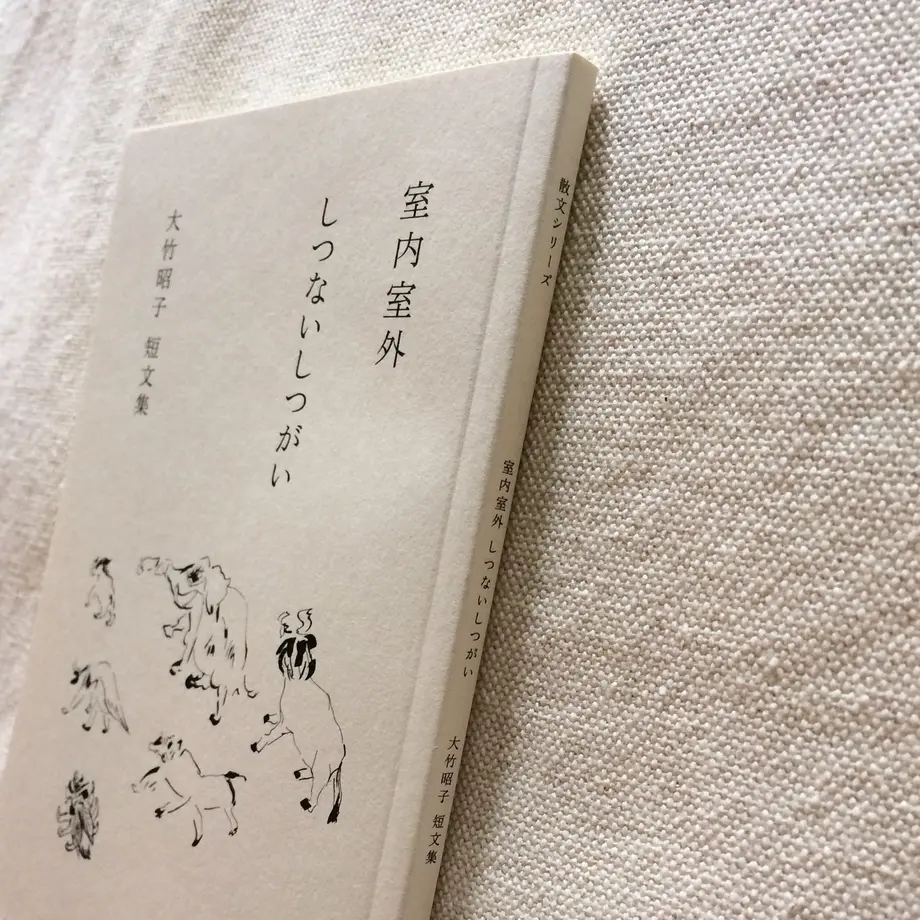 室内室外
しつないしつがい
大竹昭子 短文集
散文シリーズ
室内室外 しつないしつがい
大竹昭子 短文集